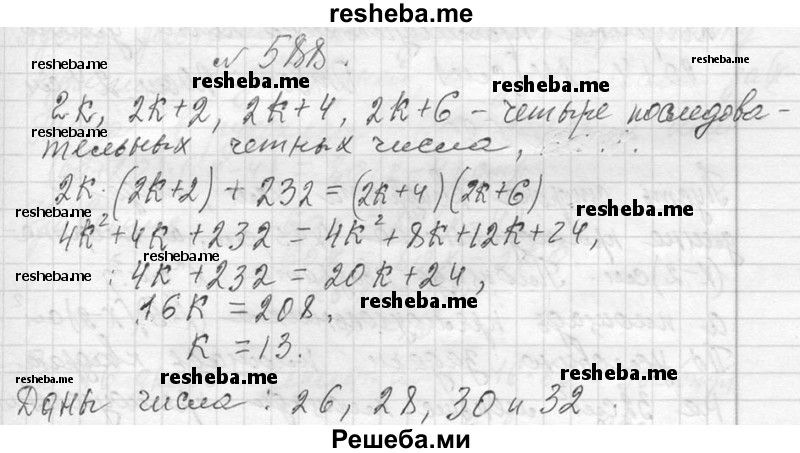 resheba.me
№ 588.
resheba.me
resheba.me
resheba.me
resheba.me
2к, 2к+2, 2к+4, 2к+6 - четыре последова-
resheba.me
тельных четных числа,
2к·(2к+2)+232=(2к+4)(2к+6)
resheba.me
resheba.me
4к²+4к+232=4к²+8к+12к+24,
resheba.me
resheba.me
4к+232=20к+24,
16к=208,
resheba.me
к=13.
resheba.me
resheba.me
resheba.me
Даны числа: 26, 28, 30 и 32.
Решеба.ми